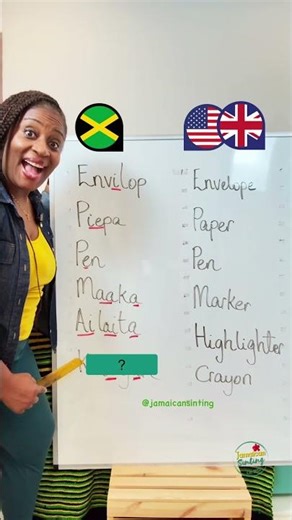 Envilop Envelope
Piepa Paper
Pen Pen
Maaka Marker
Ailaita Highlighter
? Crayon
@jamaicansinting
Jamaican
Sinting